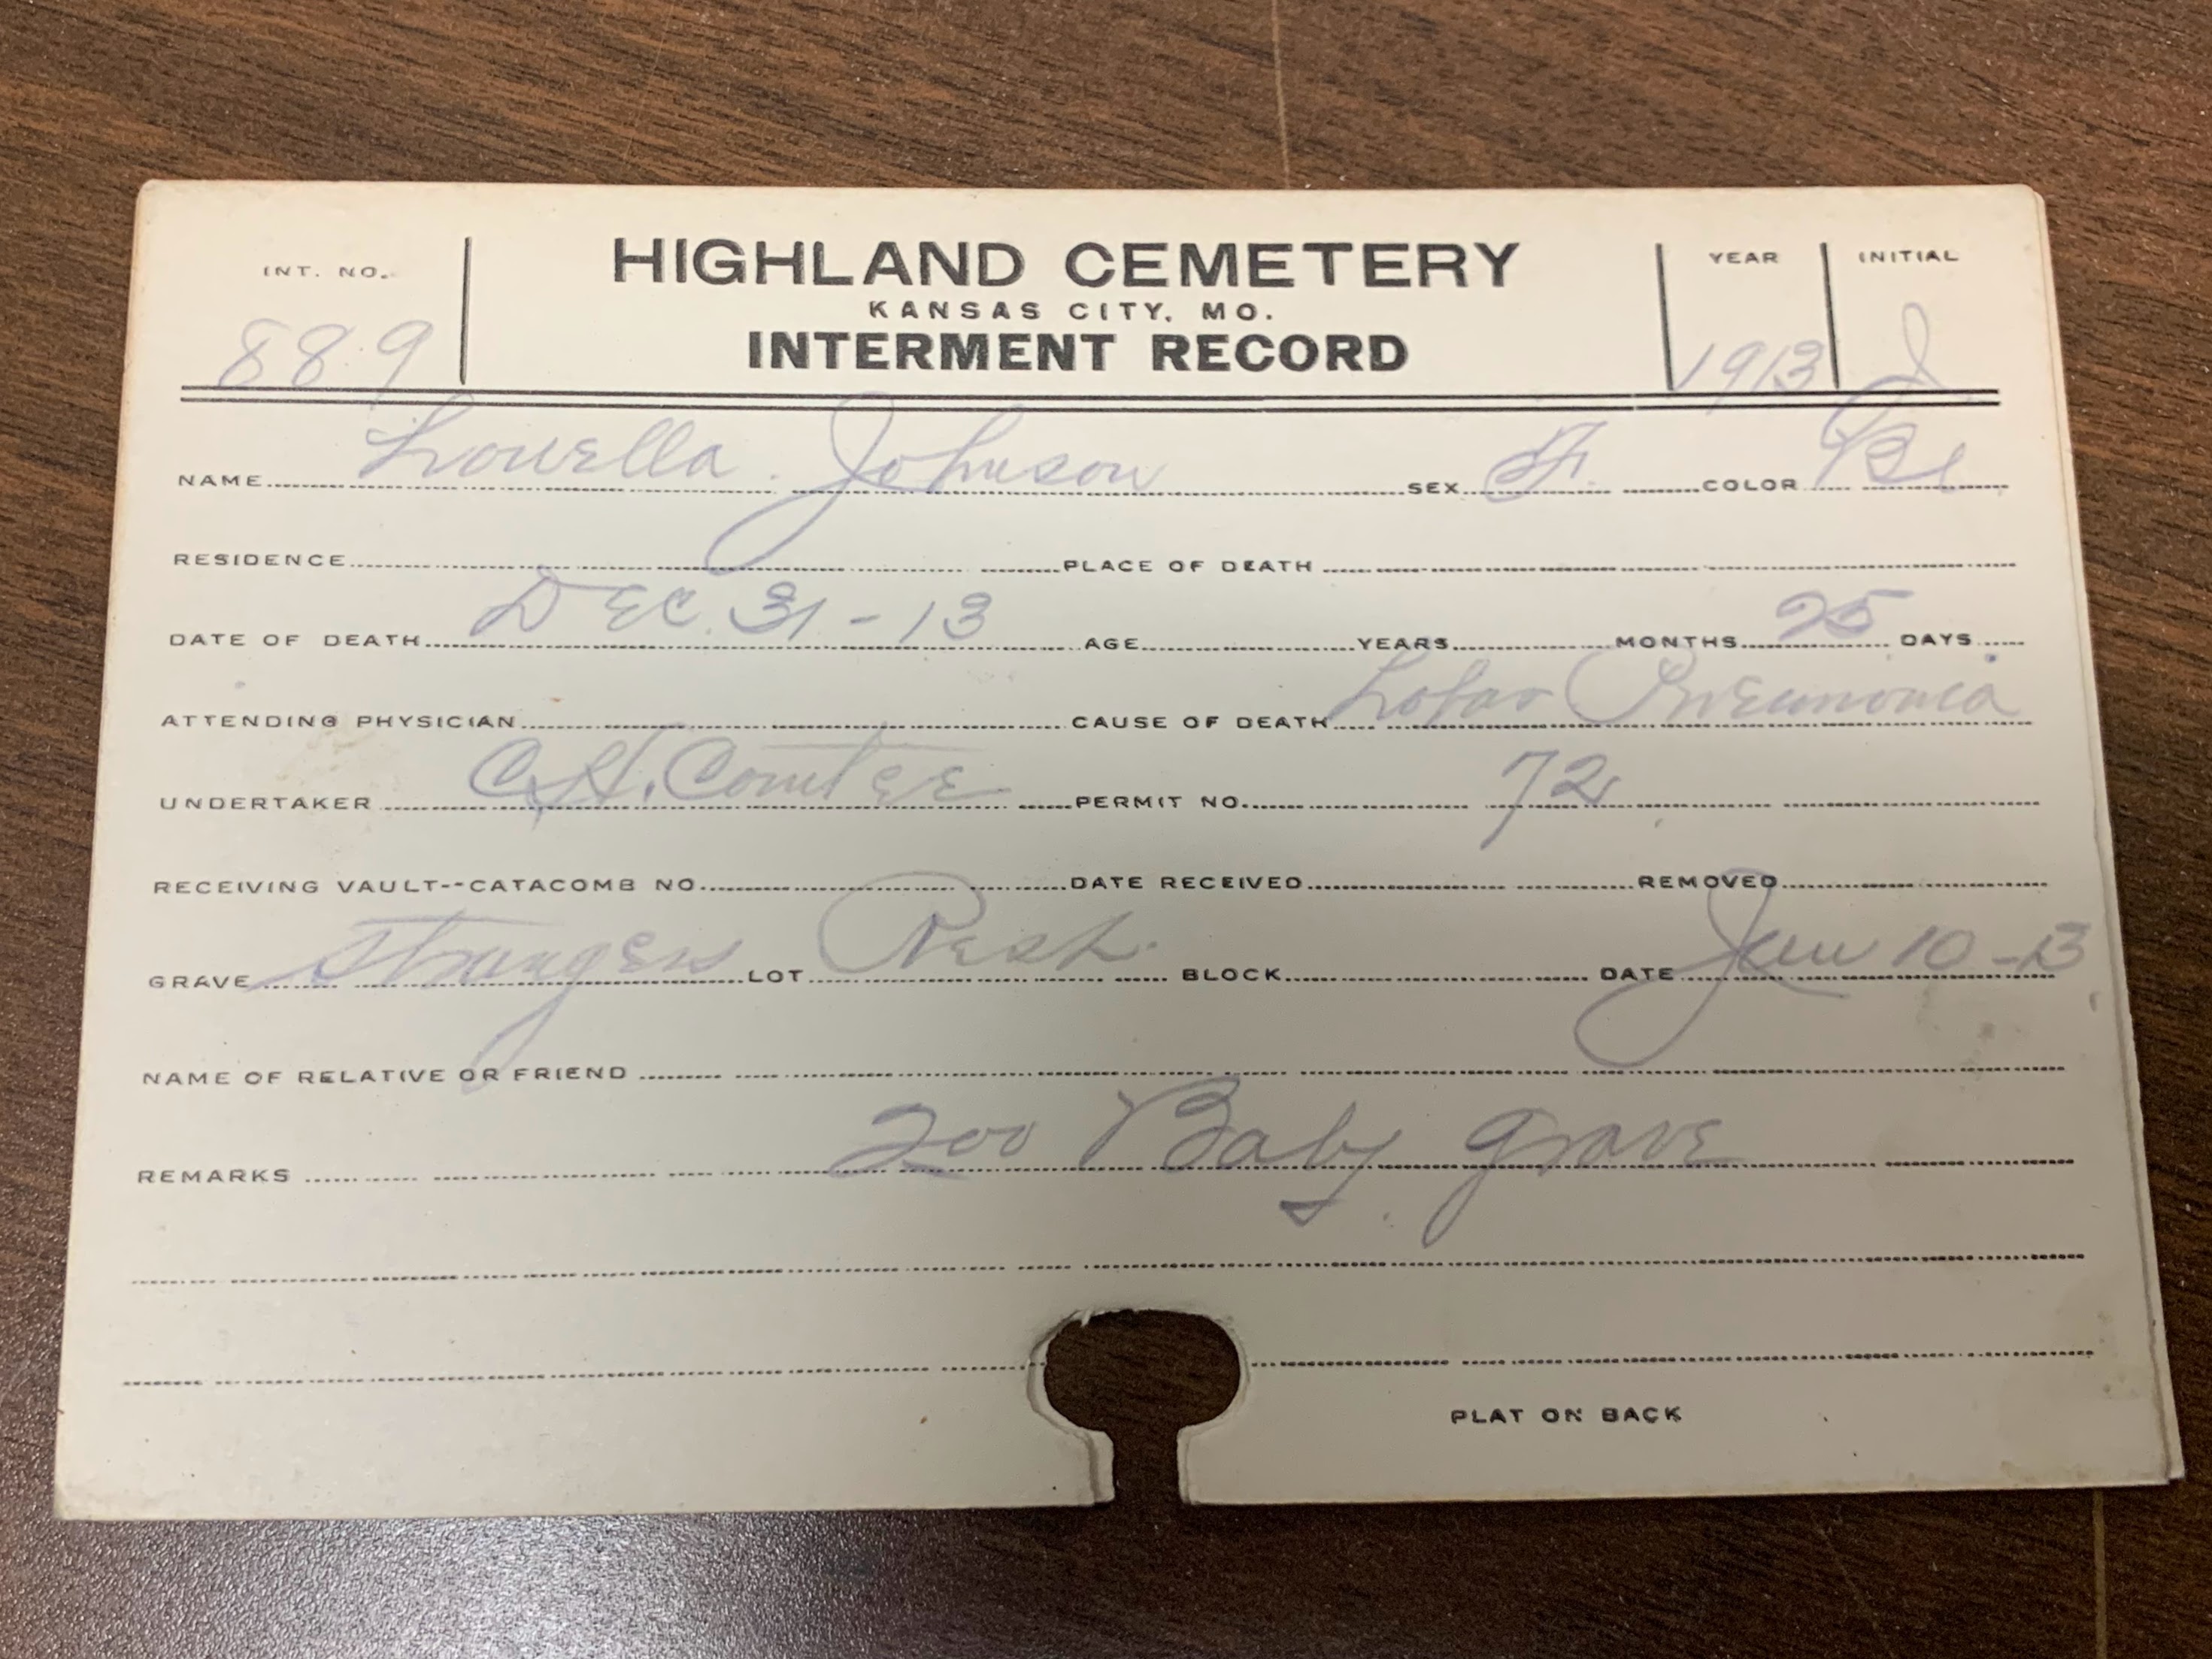 INT. NO. HIGHLAND CEMETERY YEAR INITIAL
KANSAS CITY, MO.
889 INTERMENT RECORD 1913 J
NAME Louella Johnson SEX F. COLOR Bl
RESIDENCE PLACE OF DEATH
DATE OF DEATH DEC. 31-13 AGE YEARS MONTHS 25 DAYS
ATTENDING PHYSICIAN CAUSE OF DEATH Lobar Pneumonia
UNDERTAKER C.H. Countee PERMIT NO. 72
RECEIVING VAULT--CATACOMB NO. DATE RECEIVED REMOVED
GRAVE Strangers LOT BLOCK DATE Jan 10-13
NAME OF RELATIVE OR FRIEND
REMARKS 200 Baby grave
PLAT ON BACK